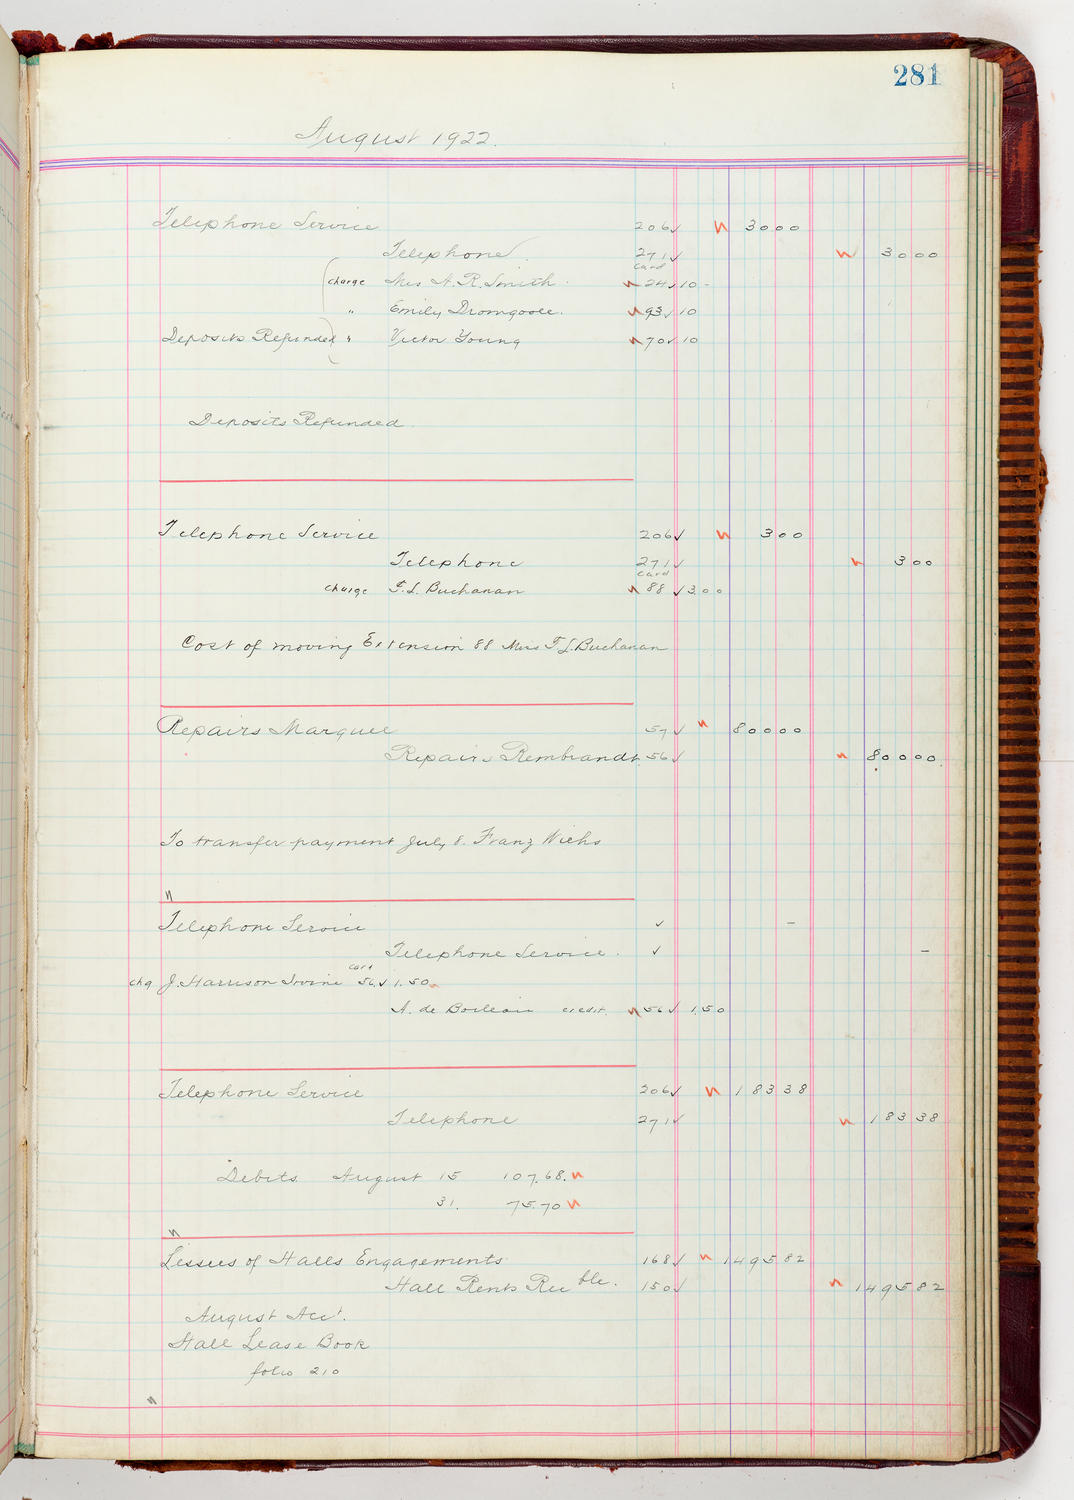 281
August 1922.
Telephone Service 206 ✓ 3000
Telephone 271 ✓ 3000
card
charge Mrs H. R. Smith. 24 ✓ 10 -
" Emily Dromgoole. 93 ✓ 10
Deposits Refunded " Victor Young 70 ✓ 10
Deposits Refunded.
Telephone Service 206 ✓ 300
Telephone 271 ✓ 300
card
charge F. L. Buchanan 88 ✓ 3.00
Cost of moving Extension 88 Miss F L. Buchanan
Repairs Marquee 57 ✓ 80000
Repairs Rembrandt. 56 ✓ 80000.
To transfer payment July 8. Franz Wichs
Telephone Service ✓ –
Telephone Service. ✓ –
card
chg J. Harrison Irvine 56 ✓ 1.50
A. de credit. 56 ✓ 1.50
Telephone Service 206 ✓ 18338
Telephone 271 ✓ 18338
Debits August 15 107.68.
31. 75.70
Lessees of Halls Engagements 168 ✓ 149582
Hall Rents Recble. 150 ✓ 149582
August Acct.
Hall Lease Book
folio 210